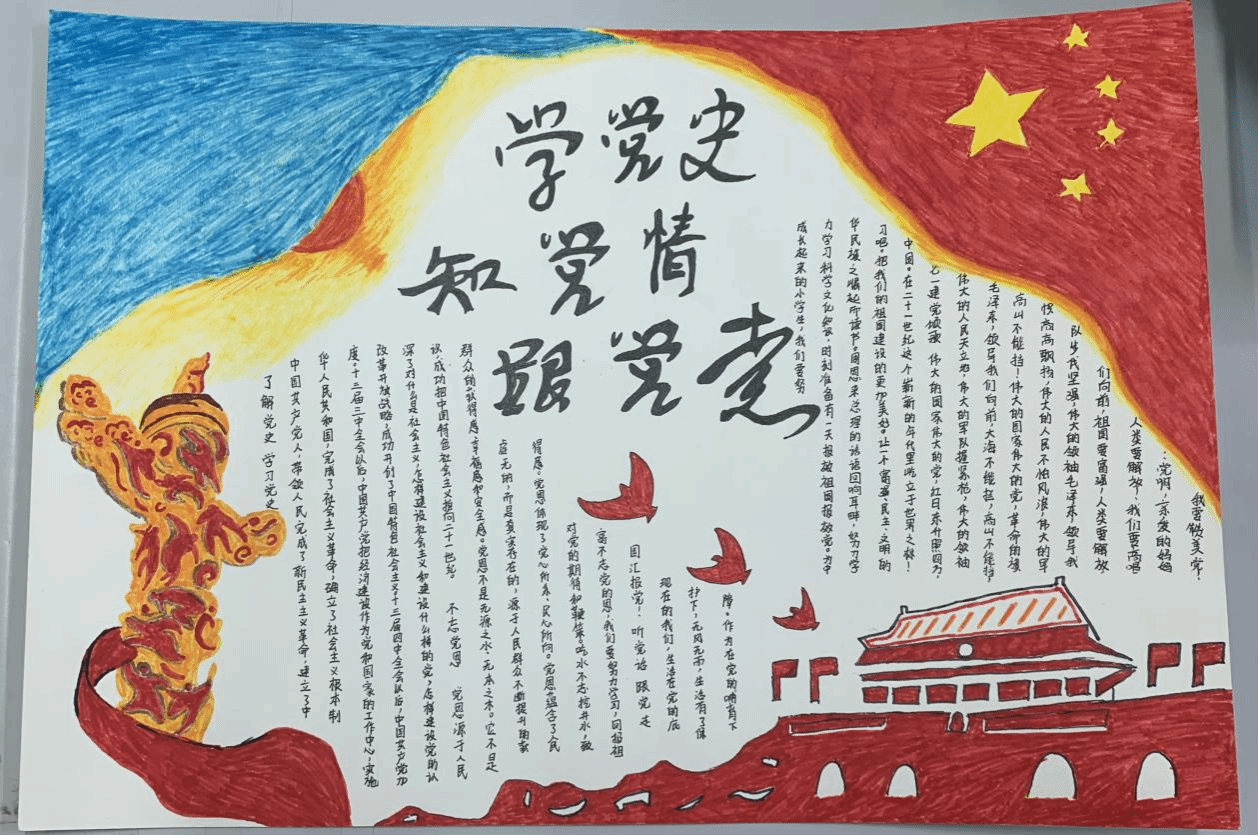 学党史
知党情
跟党走
了解党史 学习党史
中国共产党人,带领人民完成了新民主主义革命,建立了中
华人民共和国,完成了社会主义革命,确立了社会主义根本制
度。十三届三中全会以后,中国共产党把经济建设作为党和国家的工作中心,实施
改革开放战略,成功开创了中国特色社会主义。十三届四中全会以后,中国共产党加
深了对什么是社会主义,怎样建设社会主义和建设什么样的党,怎样建设党的认
识,成功把中国特色社会主义推向二十一世纪。 不忘党恩 党恩源于人民
群众的获得感、幸福感和安全感。党恩不是无源之水、无本之木。它不是
无的,而是真实存在的,源于人民群众不断提升的获
得感。党恩体现了党心所系、民心所向。党恩蕴含了人民
对党的期待和鞭策。吃水不忘挖井水,致
富不忘党的恩,我们要努力学习,回报祖
国汇报党! 听党话 跟党走
现在的我们,生活在党的庇
护下,无风无雨,生活有了保
障。作为在党的哺育下
成长起来的小学生,我们要努
力学习科学文化知识,时刻准备有一天报效祖国报效党。为中
华民族之崛起而读书。周恩来总理的话语回响耳畔,努力学
习吧。把我们的祖国建设的更加美好。让一个富强、民主、文明的
中国。在二十一世纪这个崭新的年代里屹立于世界之林!
七一建党颂歌 伟大的国家伟大的党,红日东升照四方,
伟大的人民天立地,伟大的军队握紧枪,伟大的领袖
毛泽东,领导我们向前,大海不能拦,高山不能挡!
高山不能挡!伟大的国家伟大的党,革命的旗
帜高高飘扬,伟大的人民不怕风浪,伟大的军
队步伐坚强,伟大的领袖毛泽东领导我
们向前,祖国要富强,人类要解放
人类要解放!我们要高唱
……党啊,亲爱的妈妈
我要赞美党!